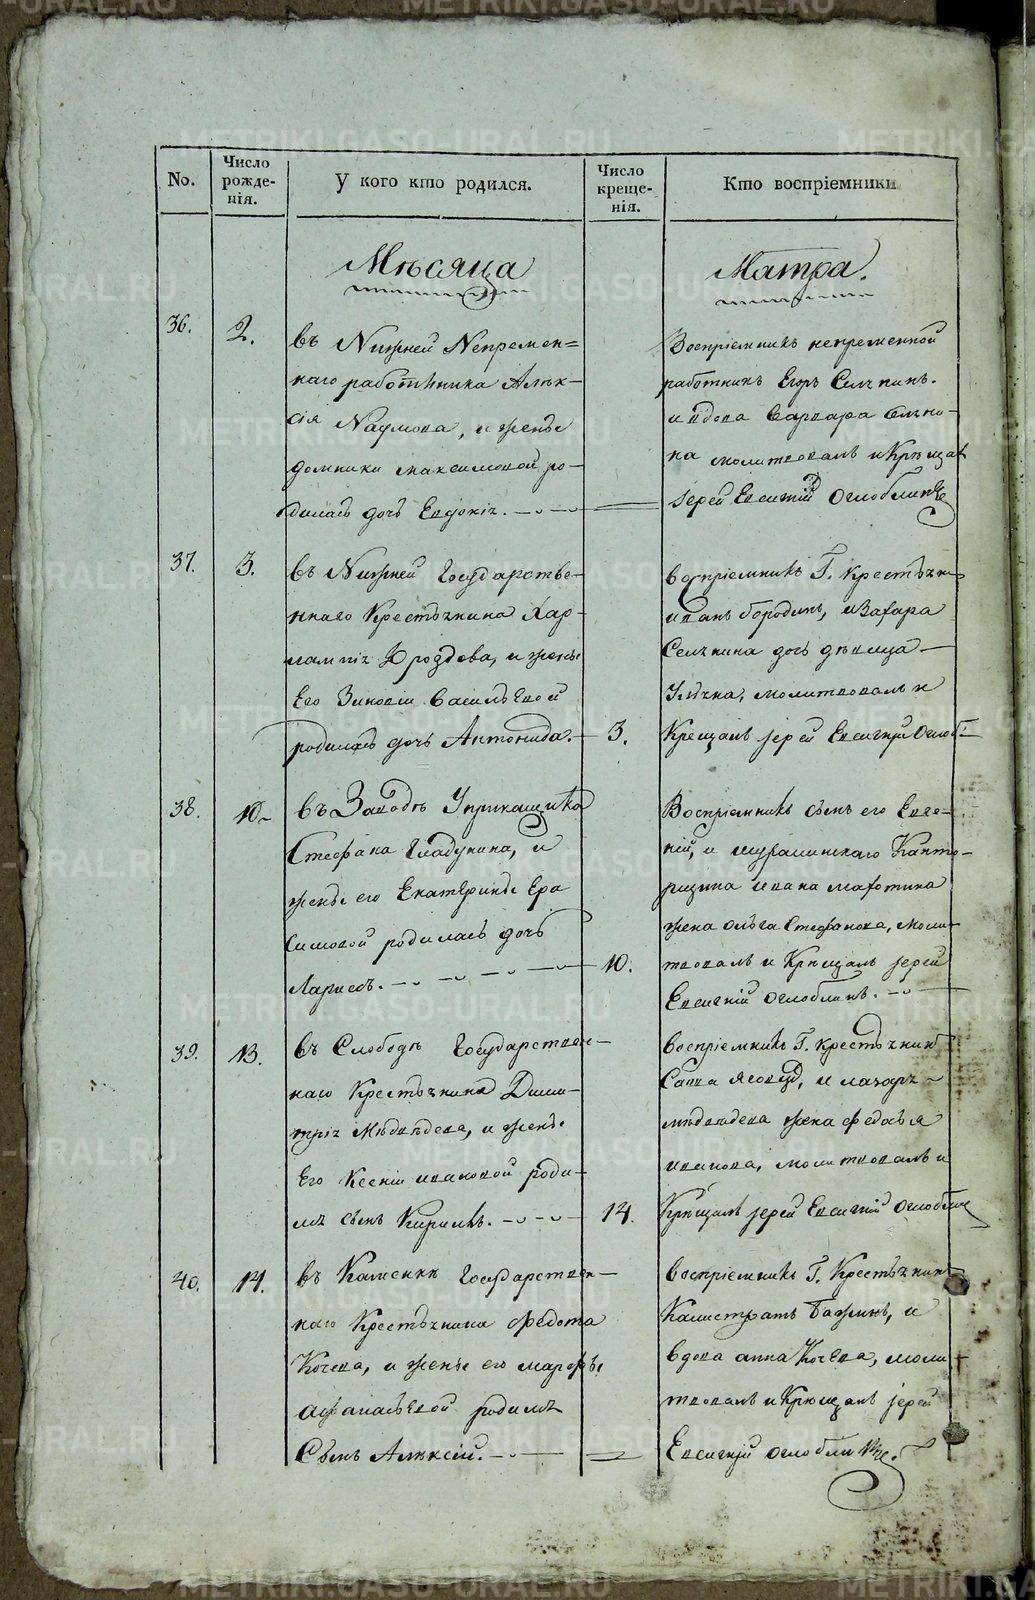 No.
Число рожде- нія.
У кого кто родился.
Число креще- нія.
Кто воспріемники
Мѣсяца
Матра.
36.
2.
въ Нижней Непремен=
наго работника Алѣк-
сія Наумова, и женѣ
домники максимовой ро-
дилась дочь Евдокія.
Воспріемникъ непременной
работникъ Егоръ Селянинъ.
и вдова Варвара
на молитвовалъ и Крѣщал
іерей Евсигній Оглоблинъ
37.
3.
въ Нижней Государстве-
ннаго Крестьянина Хар-
лампія Дроздова, и женѣ
Его Зиновіи Васильевой
родилась дочь Антонида.
3.
воспріемникъ Г. Крестьяни
иванъ бородинъ, и Захара
Селянина дочь дѣвица
молитвовалъ и
Крещалъ іерей Евсигній Оглоб.
38.
10.
въ Заводѣ Уприкащика
Стефана Гладунина, и
женѣ его Екатеринѣ Ера
симовой родилась дочь
Лариса.
10.
Воспріемникъ сынъ его Евге-
ній, и шуралинскаго Канто-
рщика ивана махотина
жена ольга Стефанова, моли-
твовалъ и Крѣщалъ іерей
Евсигній Оглоблинъ.
39.
13.
въ Слободѣ Государствен-
наго Крестьянина Дими-
трія Мѣдвѣдева, и женѣ
Его Ксеніи ивановой роди-
лся сынъ Кирилъ.
14.
воспріемникъ Г. Крестьянинъ
Савва и лазаря
мѣдвѣдева жена федосья
иванова, молитвовалъ и
Крѣщалъ іерей Евсигній Оглоблин
40.
14.
въ Каменкѣ Государствен-
наго Крестьянина Федота
Кочева, и женѣ его марфѣ
афанасьевой родился
Сынъ Алѣксій.
воспріемникъ Г. Крестьянинъ
Калистратъ Бажинъ, и
вдова анна Кочева, моли
твовалъ и Крѣщалъ іерей
Евсигній оглоблинъ.
METRIKI.GASO-URAL.RU